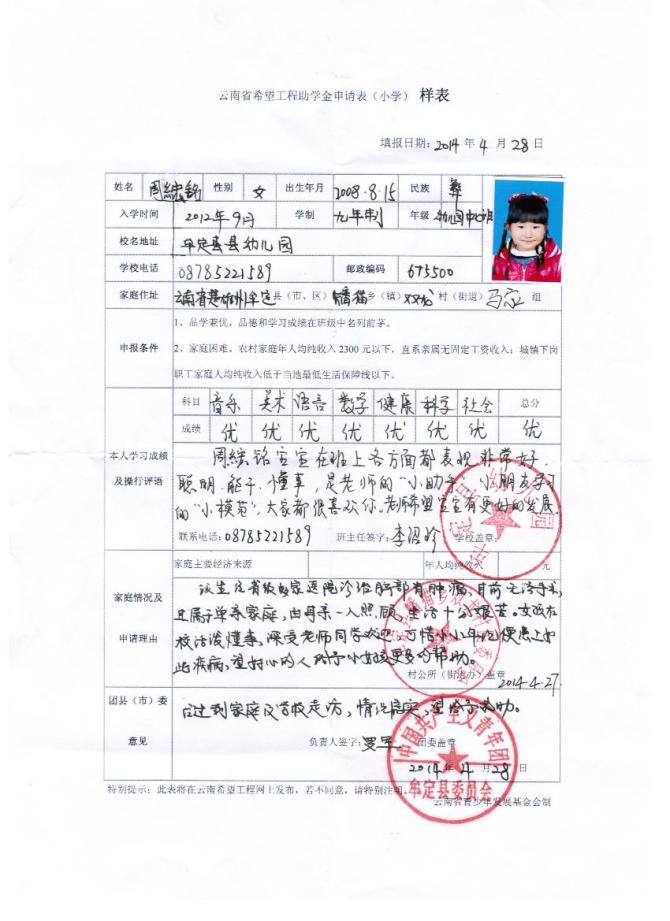 云南省希望工程助学金申请表（小学） 样表
填报日期：2014 年 4 月 28 日
姓名 周綜銘 性别 女 出生年月 2008.8.15 民族 彝
入学时间 2012年9月 学制 九年制 年级 幼儿园中班
校名地址 牟定县幼儿园
学校电话 08785221589 邮政编码 675500
家庭住址 云南省楚雄州牟定 县（市、区） 蟠猫 乡（镇） 双龙 村（街道） 马家 组
申报条件
1、品学兼优。品德和学习成绩在班级中名列前茅。
2、家庭困难。农村家庭年人均纯收入 2300 元以下，直系亲属无固定工资收入；城镇下岗
职工家庭人均纯收入低于当地最低生活保障线以下。
本人学习成绩及操行评语
科目 音乐 美术 语言 数学 健康 科学 社会 总分
成绩 优 优 优 优 优 优 优 优
周綜銘宝宝在班上各方面都表现非常好，
聪明、能干、懂事，是老师的“小助手”，小朋友学习
的“小模范”，大家都很喜欢你。老师希望宝宝有更好的发展。
联系电话：08785221589 班主任签字：李绍珍 学校盖章：
家庭情况及申请理由
家庭主要经济来源 年人均纯收入 元
该生在省级多家医院诊治 部有肿瘤，目前无法手术，
且属于单亲家庭，由母亲一人照顾，生活十分艰苦。女孩在
校活泼懂事，深受老师同学欢迎，可惜小小年纪便患上如
此疾病，望好心的人给予小女孩更多的帮助。
村公所（街道办）盖章
2014.4.27.
团县（市）委意见
经过到家庭及学校走访，情况属实，望给予救助。
负责人签字：罗军 团委盖章
2014 年 4 月 28 日
中国共产主义青年团
牟定县委员会
特别提示：此表将在云南希望工程网上发布，若不同意，请特别注明。
云南省青少年发展基金会制